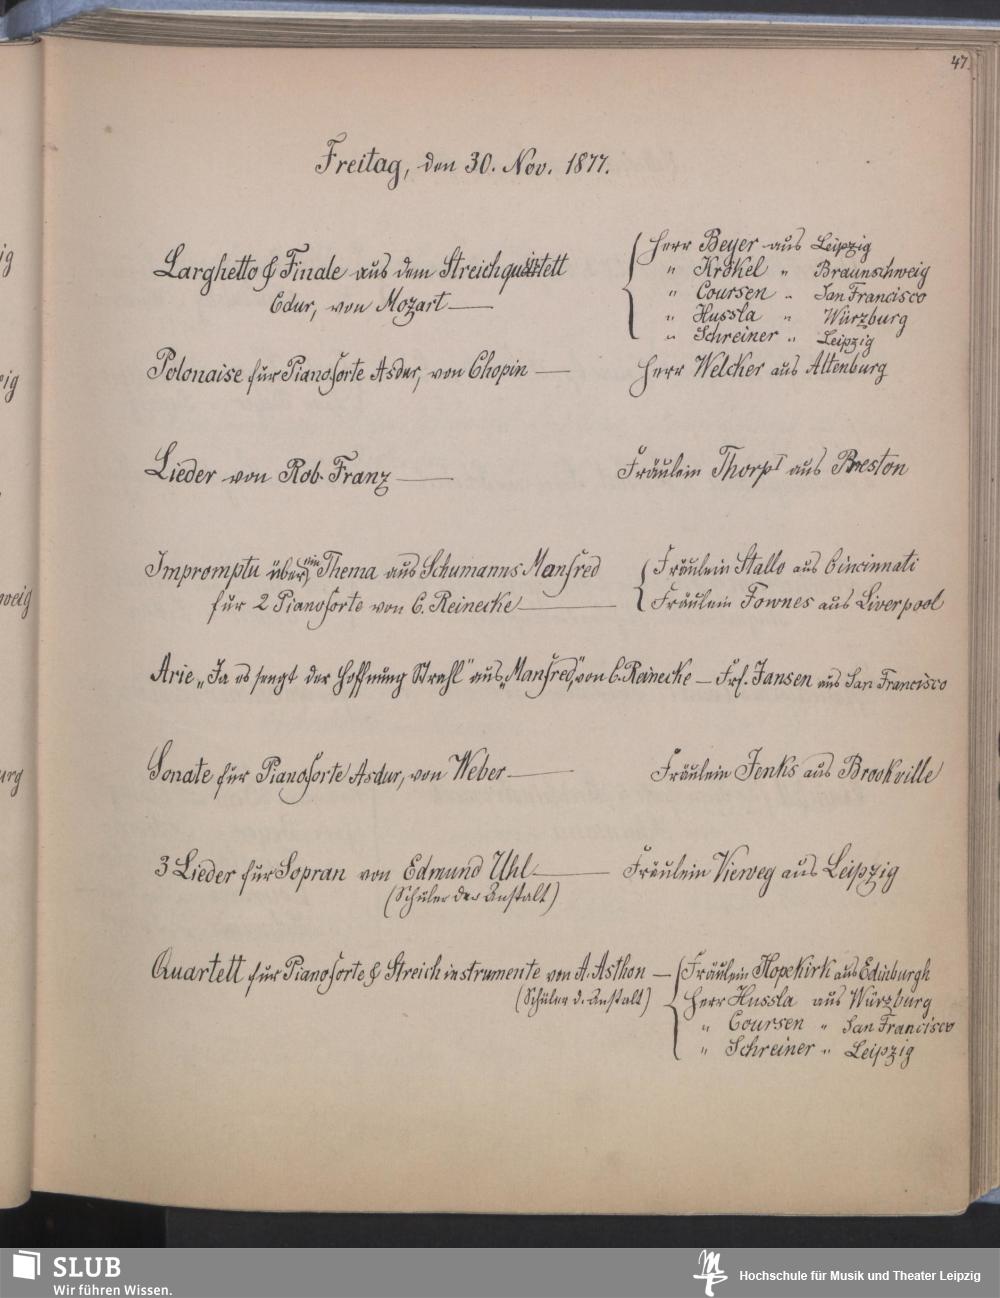 47.
Freitag, den 30. Nov. 1877.
Larghetto & Finale aus dem Streichquintett
Edur, von Mozart —
Herr Beyer aus Leipzig
" Krökel " Braunschweig
" Coursen " San Francisco
" Hussla " Würzburg
" Schreiner " Leipzig
Polonaise für Pianoforte Asdur, von Chopin — Herr Welcker aus Altenburg
Lieder von Rob. Franz — Fräulein Thorp I aus Preston
Impromptu über ein Thema aus Schumanns Manfred
für 2 Pianoforte von C. Reinecke —
Fräulein Stallo aus Cincinnati
Fräulein Fownes aus Liverpool
Arie „Ja es sengt der Hoffnung Strahl" aus „Manfred", von C. Reinecke — Frl. Jansen aus San Francisco
Sonate für Pianoforte Asdur, von Weber — Fräulein Jenks aus Brookville
3 Lieder für Sopran von Edmund Uhl — Fräulein Vierweg aus Leipzig
(Schüler der Anstalt)
Quartett für Pianoforte & Streichinstrumente von A. Asthon —
(Schüler d. Anstalt)
Fräulein Hopekirk aus Edinburgh
Herr Hussla aus Würzburg
" Coursen " San Francisco
" Schreiner " Leipzig
ig
eig
weig
urg
SLUB
Wir führen Wissen.
Hochschule für Musik und Theater Leipzig